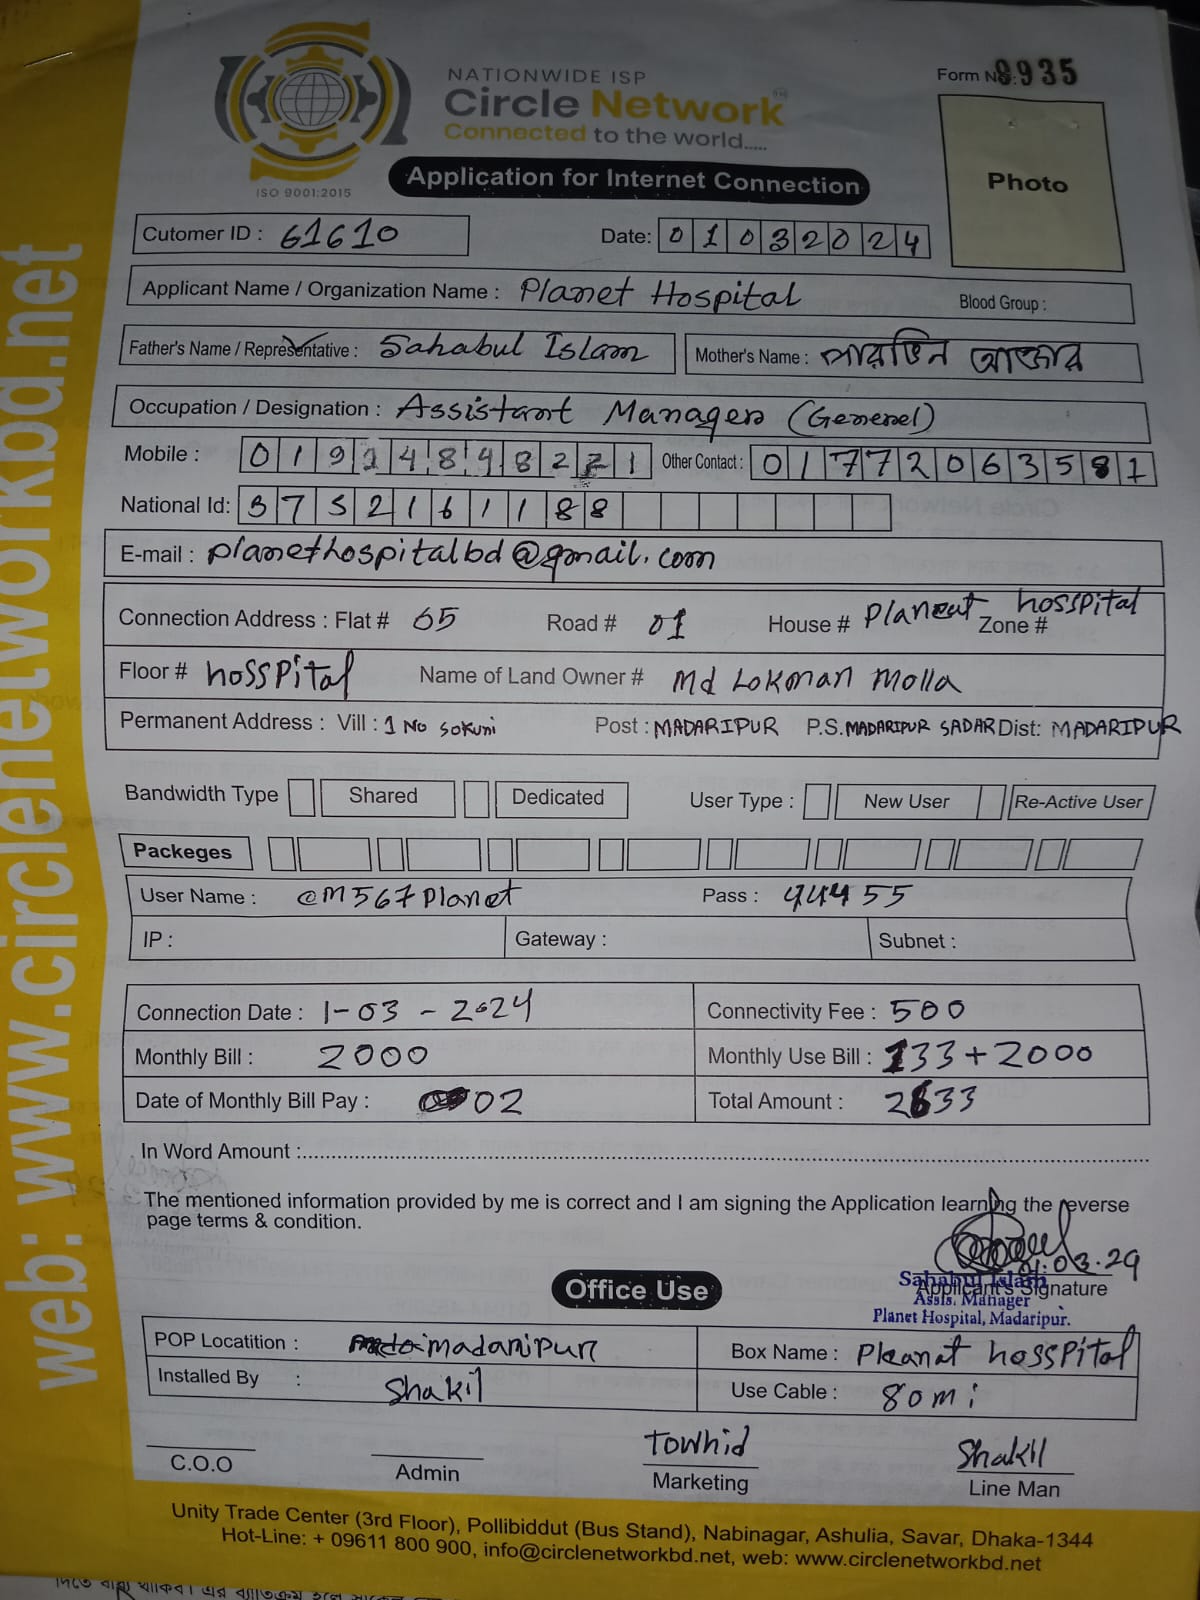 NATIONWIDE ISP
Circle Network
Connected to the world.....
ISO 9001:2015
Form No: 9935
Application for Internet Connection
Photo
Cutomer ID : 61610 Date: 01032024
Applicant Name / Organization Name : Planet Hospital Blood Group :
Father's Name / Representative : Sahabul Islam Mother's Name : পারভিন আক্তার
Occupation / Designation : Assistant Manager (General)
Mobile : 01924848221 Other Contact : 01772063581
National Id: 3752161188
E-mail : planethospitalbd@gmail.com
Connection Address : Flat # 65 Road # 01 House # Planeat hosspital Zone #
Floor # hosspital Name of Land Owner # Md Lokman Molla
Permanent Address : Vill : 1 No sokuni Post : MADARIPUR P.S. MADARIPUR SADAR Dist: MADARIPUR
Bandwidth Type Shared Dedicated User Type : New User Re-Active User
Packeges
User Name : @M567Planet Pass : 44455
IP : Gateway : Subnet :
Connection Date : 1-03-2024 Connectivity Fee : 500
Monthly Bill : 2000 Monthly Use Bill : 133+2000
Date of Monthly Bill Pay : 02 Total Amount : 2633
In Word Amount :
The mentioned information provided by me is correct and I am signing the Application learning the reverse
page terms & condition.
01.03.24
Applicant's Signature
Sahabul Islam
Assis. Manager
Planet Hospital, Madaripur.
Office Use
POP Locatition : madaripur Box Name : Pleanat hosspital
Installed By : Shakil Use Cable : 80 mi
C.O.O Admin Towhid Marketing Shakil Line Man
Unity Trade Center (3rd Floor), Pollibiddut (Bus Stand), Nabinagar, Ashulia, Savar, Dhaka-1344
Hot-Line: + 09611 800 900, info@circlenetworkbd.net, web: www.circlenetworkbd.net
web: www.circlenetworkbd.net